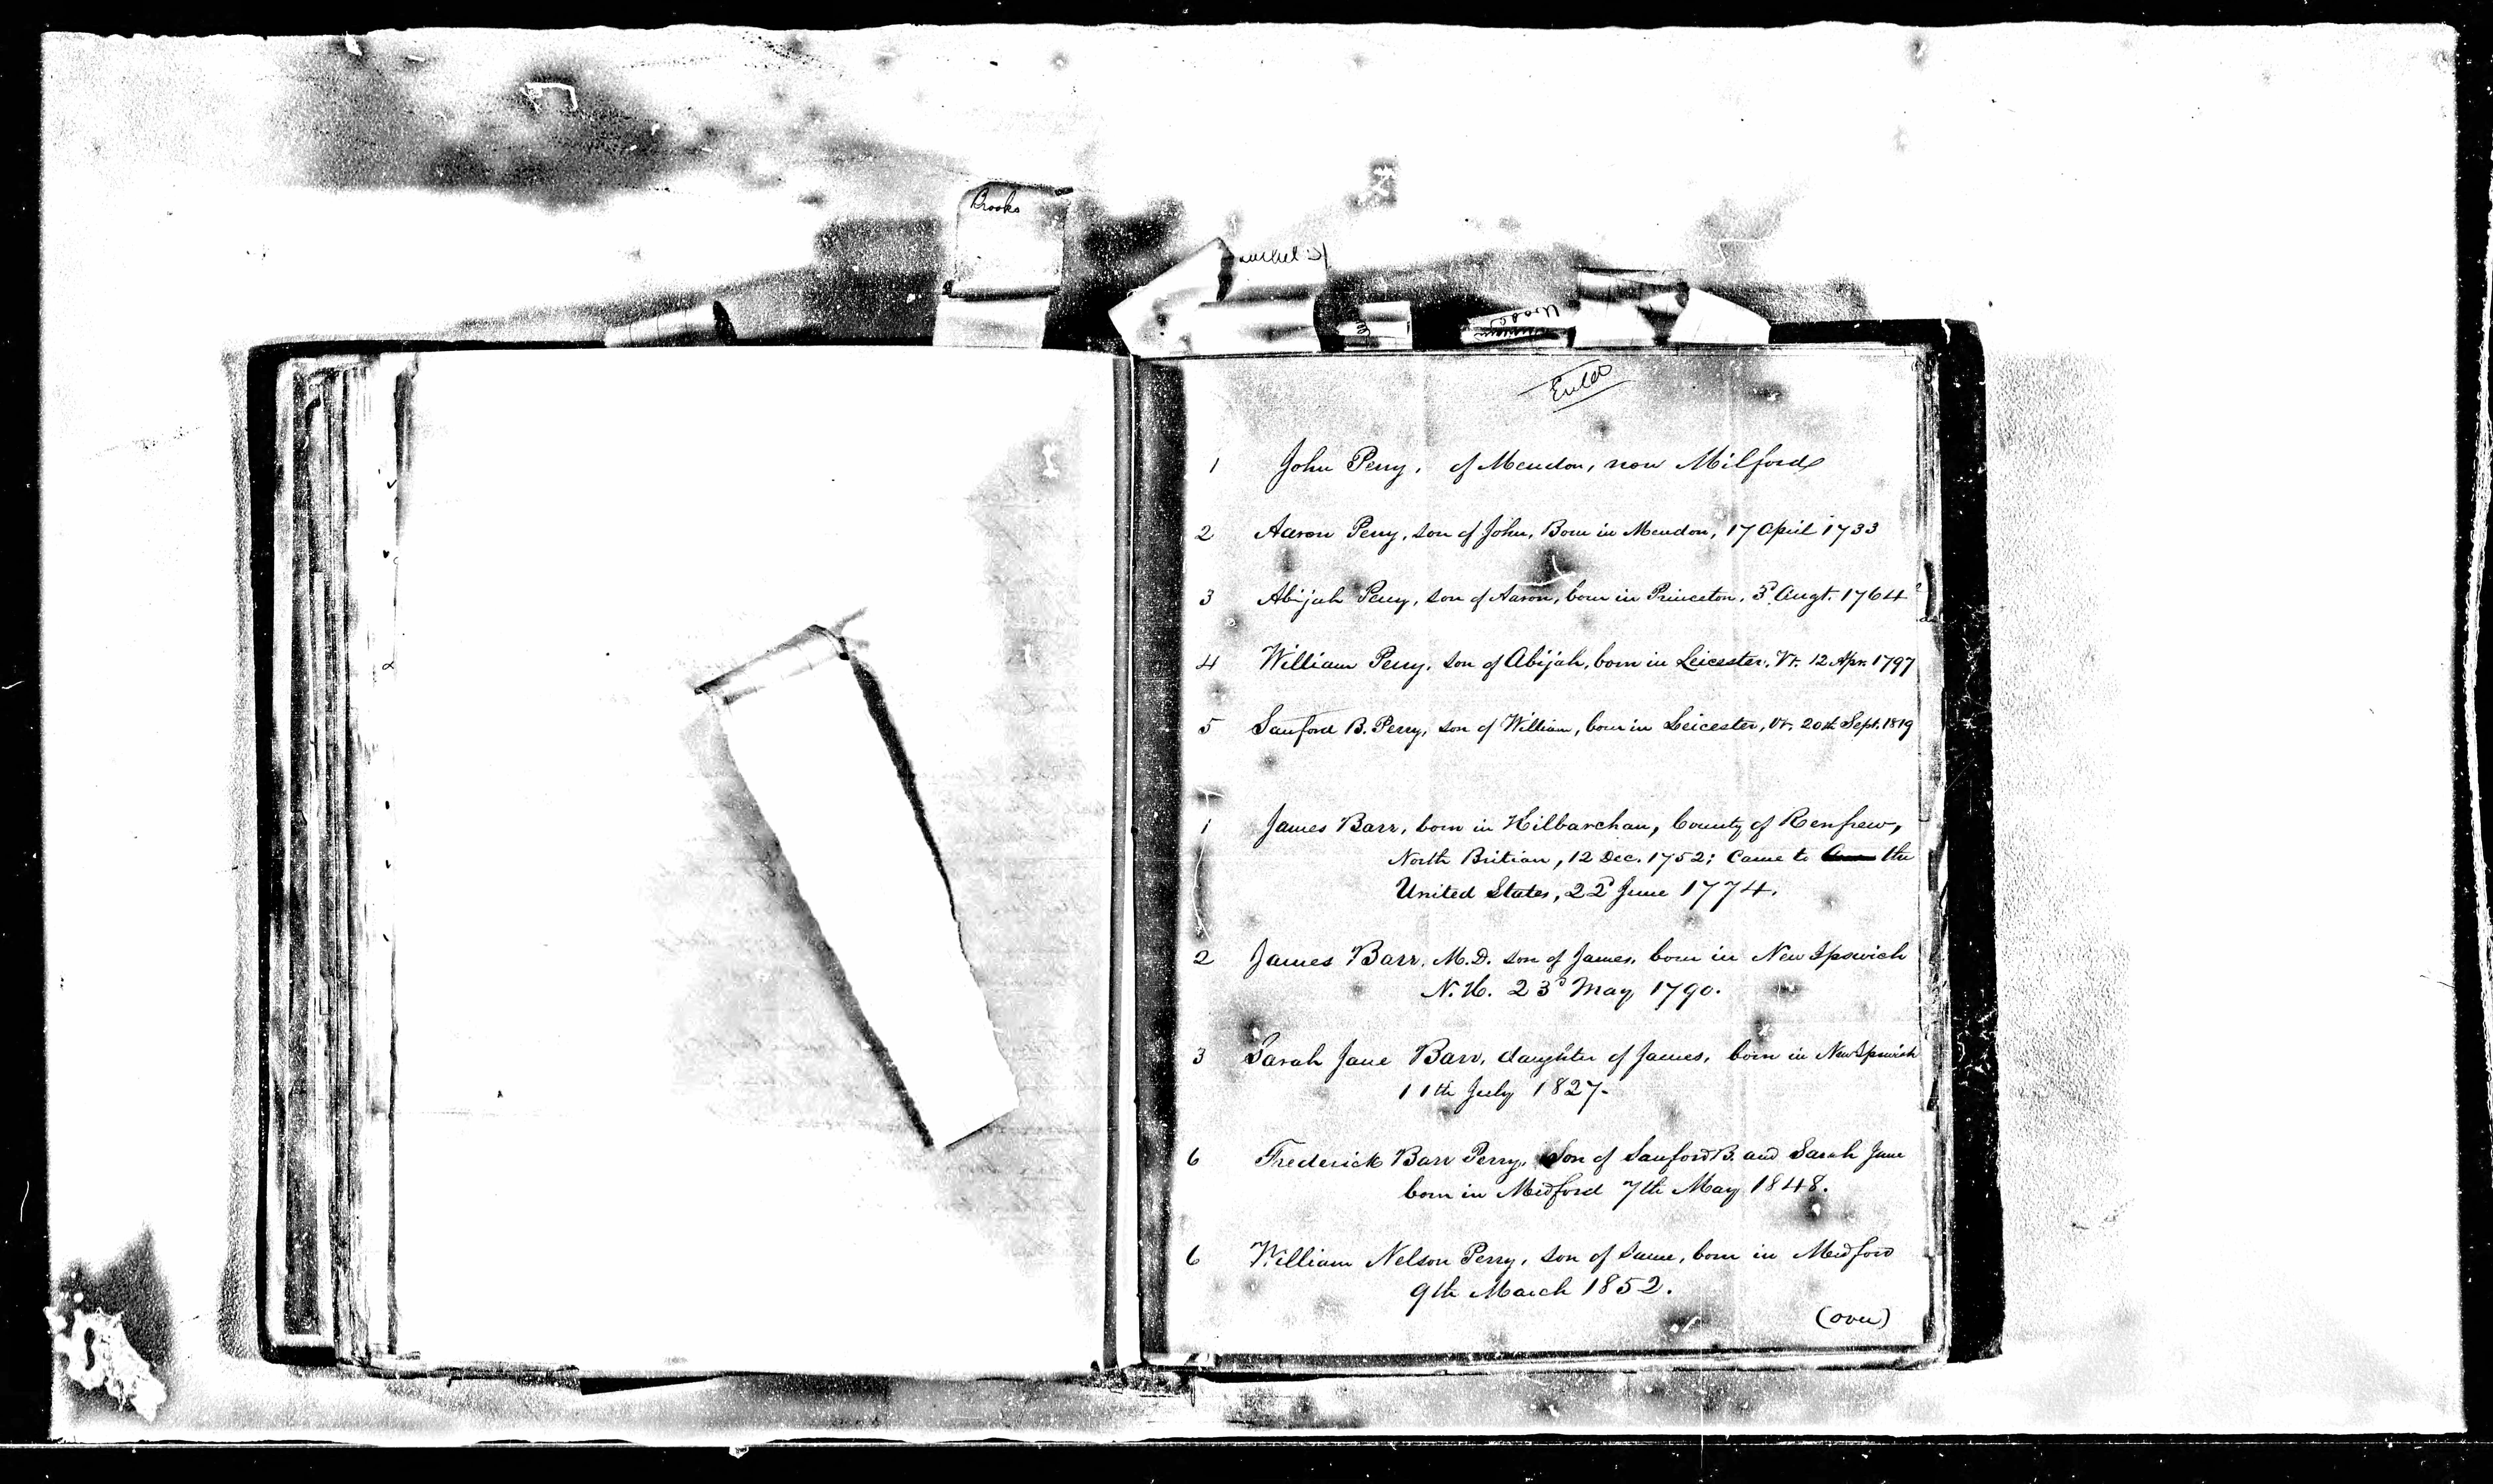 Brooks
Ent'd
1 John Perry, of Mendon, now Milford
2 Aaron Perry, son of John, Born in Mendon, 17 April 1733
3 Abijah Perry, son of Aaron, born in Princeton, 3d Augt. 1764
4 William Perry, son of Abijah, born in Leicester, Vt. 12 Apr. 1797
5 Sanford B. Perry, son of William, born in Leicester, Vt. 20th Sept. 1819
1 James Barr, born in Kilbarchan, County of Renfrew,
North Britian, 12 Dec. 1752; Came to the
United States, 22d June 1774.
2 James Barr, M.D. son of James, born in New Ipswich
N.H. 23d May 1790.
3 Sarah Jane Barr, daughter of James, born in New Ipswich
11th July 1827.
6 Frederick Barr Perry, Son of Sanford B. and Sarah Jane
born in Medford 7th May 1848.
6 William Nelson Perry, son of same, born in Medford
9th March 1852.
(over)